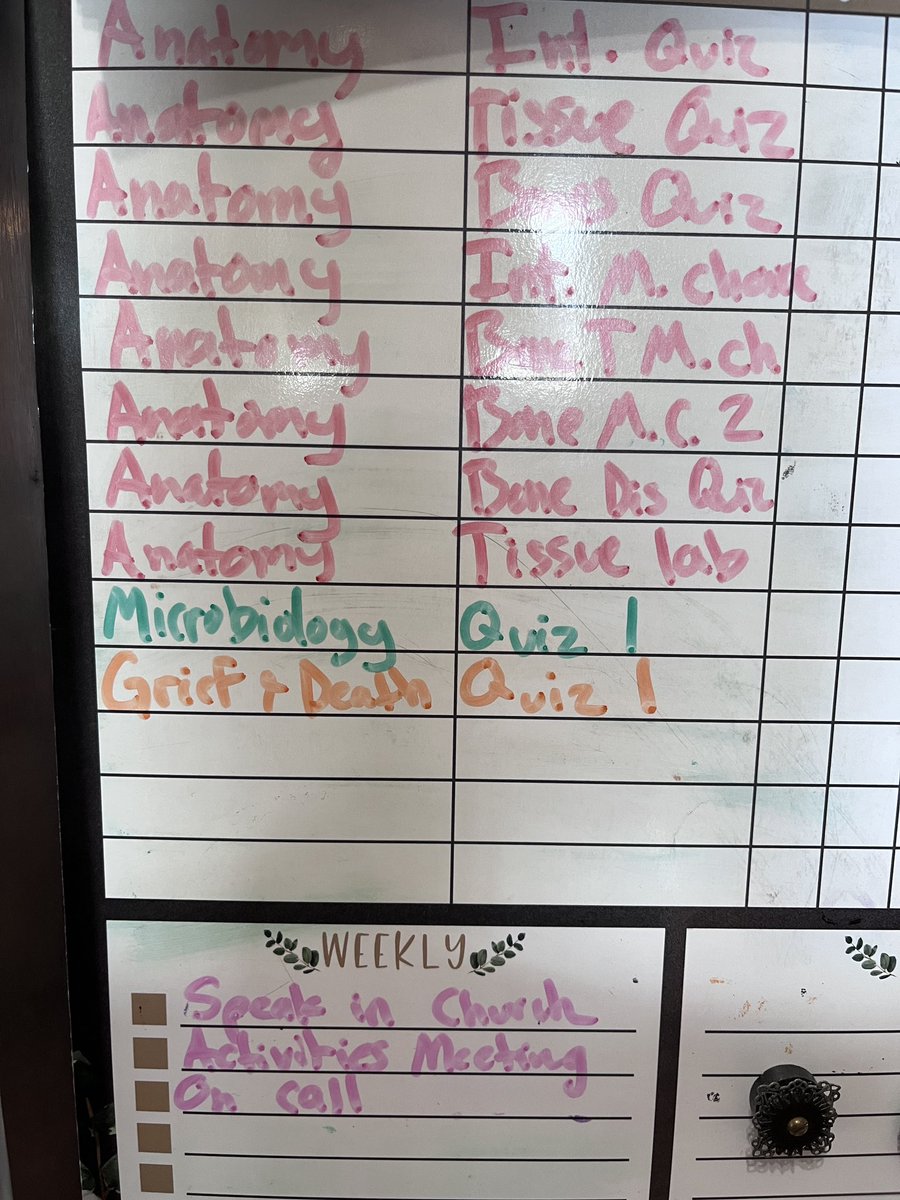 Anatomy Int. Quiz
Anatomy Tissue Quiz
Anatomy Quiz
Anatomy Int. M. choice
Anatomy Bone.T M.ch.
Anatomy Bone M.C. 2
Anatomy Bone Dis Quiz
Anatomy Tissue lab
Microbiology Quiz 1
Grief & Death Quiz 1
WEEKLY
Speak in Church
Activities Meeting
On call